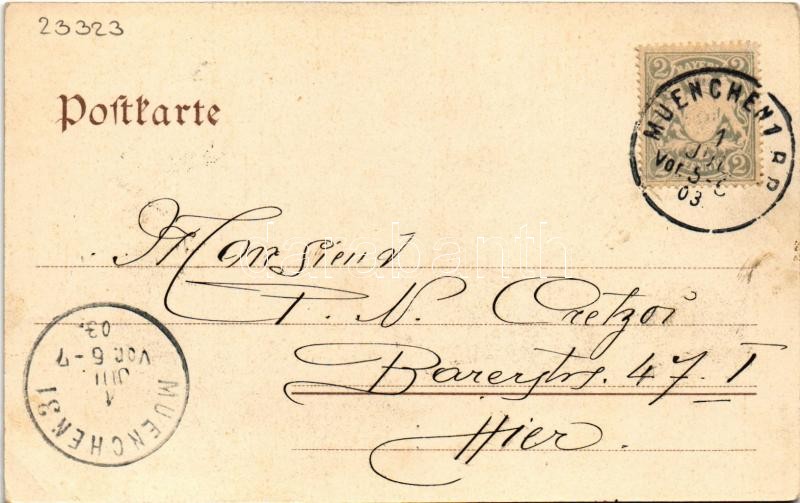 23323
Postkarte
2 BAYERN 2
2 2
MUENCHEN 1 B.P.
1
JUL
Vor. 5-6
03.
Monsieur
P. N. Cretzoi
Barerstrs. 47. I
Hier.
MUENCHEN 31
1
JUL
VOR. 6-7
03.
darabanth